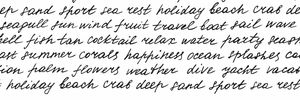 ep sand sport sea rest holiday beach crab de
seagull sun wind fruit travel boat sail wave
hell fish tan cocktail relax water party seas
ast summer corals happiness ocean splashes ca
ion palm flowers weather dive yacht vacat
t holiday beach crab deep sand sport sea rest